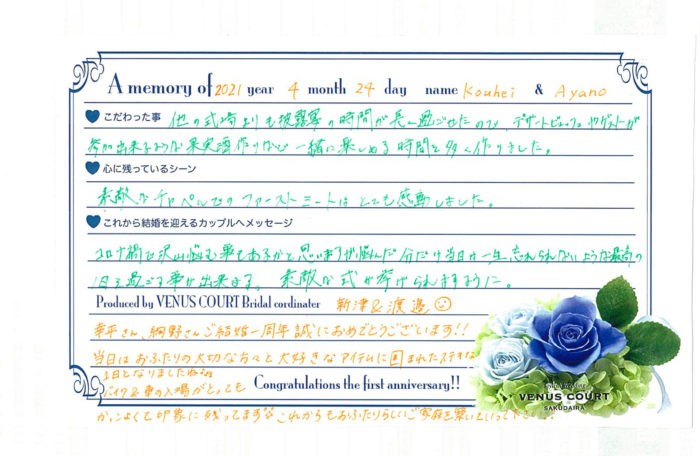 A memory of 2021 year 4 month 24 day name Kouhei & Ayano
こだわった事 他の式場よりも披露宴の時間が長く過ごせたので、デザートビュッフェやゲストが
参加出来るような果実酒作りなど一緒に楽しめる時間を多く作りました。
心に残っているシーン
素敵なチャペルでのファーストミートはとても感動しました。
これから結婚を迎えるカップルへメッセージ
コロナ禍で沢山悩む事もあるかと思いますが悩んだ分だけ当日は一生忘れられないような最高の
1日を過ごす事が出来ます。素敵な式が挙げられますように。
Produced by VENUS COURT Bridal cordinater 新津&渡邉
幸平さん、絢野さんご結婚一周年誠におめでとうございます!!
当日はおふたりの大切な方々と大好きなアイテムに囲まれたステキな
1日となりましたね
バイク&車の入場がとっても
Congratulations the first anniversary!!
かっこよくて印象に残ってます これからもおふたりらしいご家庭を築いていって下さい
VENUS COURT
SAKUDAIRA